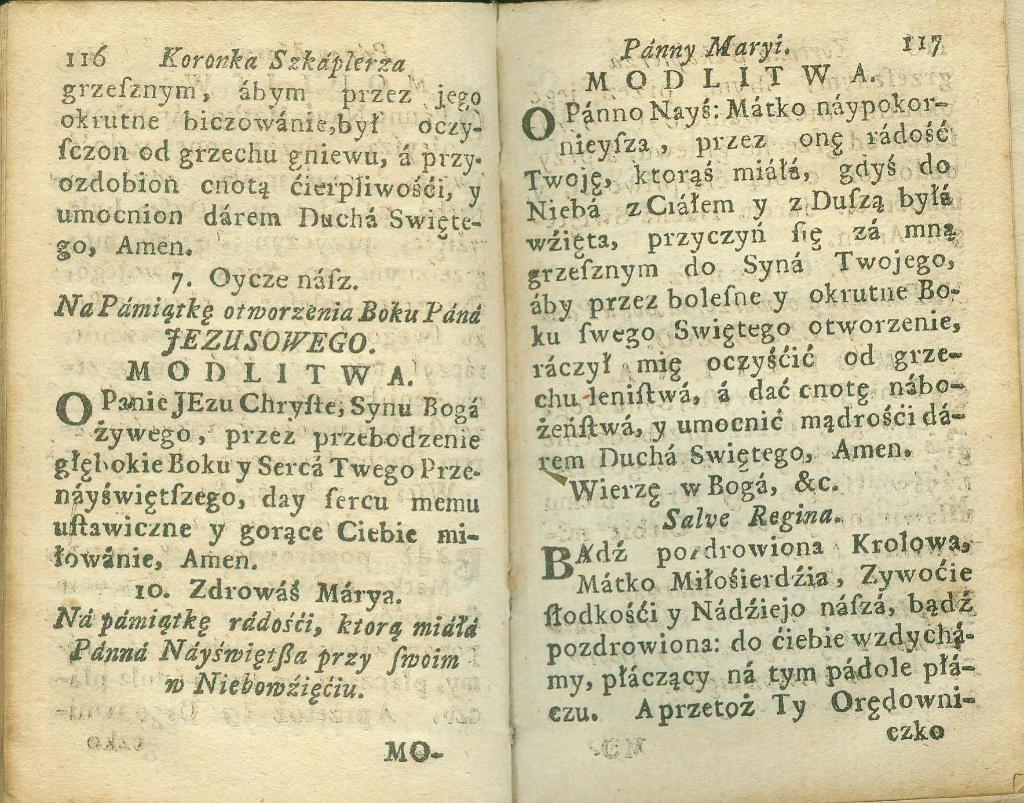 116 Koronka Szkáplerza
grzeſznym, ábym przez jego
okrutne biczowánie,był oczy-
ſczon od grzechu gniewu, á przy-
ozdobion cnotą ćierpliwośći, y
umocnion dárem Duchá Swięte-
go, Amen.
7. Oycze náſz.
Na Pámiątkę otworzenia Boku Páná
JEZUSOWEGO.
MODLITWA.
O Panie JEzu Chryſte, Synu Bogá
żywego, przez przebodzenie
głębokie Boku y Sercá Twego Prze-
náyświętſzego, day ſercu memu
uſtawiczne y gorące Ciebie mi-
łowánie, Amen.
10. Zdrowáś Márya.
Ná pámiątkę rádośći, ktorą miáłá
Pánná Náyświętßa przy ſwoim
w Niebowźięćiu.
MO-
Pánny Maryi. 117
MODLITWA.
O Pánno Nayś: Mátko náypokor-
nieyſza, przez onę rádość
Twoję, ktorąś miáłá, gdyś do
Niebá z Ciáłem y z Duſzą byłá
wźięta, przyczyń ſię zá mną
grzeſznym do Syná Twojego,
áby przez boleſne y okrutne Bo-
ku ſwego Swiętego otworzenie,
ráczył mię oczyśćić od grze-
chu leniſtwá, á dać cnotę nábo-
żeńſtwá, y umocnić mądrości dá-
rem Duchá Swiętego, Amen.
Wierzę w Bogá, &c.
Salve Regina.
BAdź pozdrowiona Krolowa,
Mátko Miłośierdźia, Zywoćie
ſłodkośći y Nádźiejo náſzá, bądź
pozdrowiona: do ćiebie wzdychá-
my, płáczący ná tym pádole płá-
czu. A przetoż Ty Orędowni-
czko